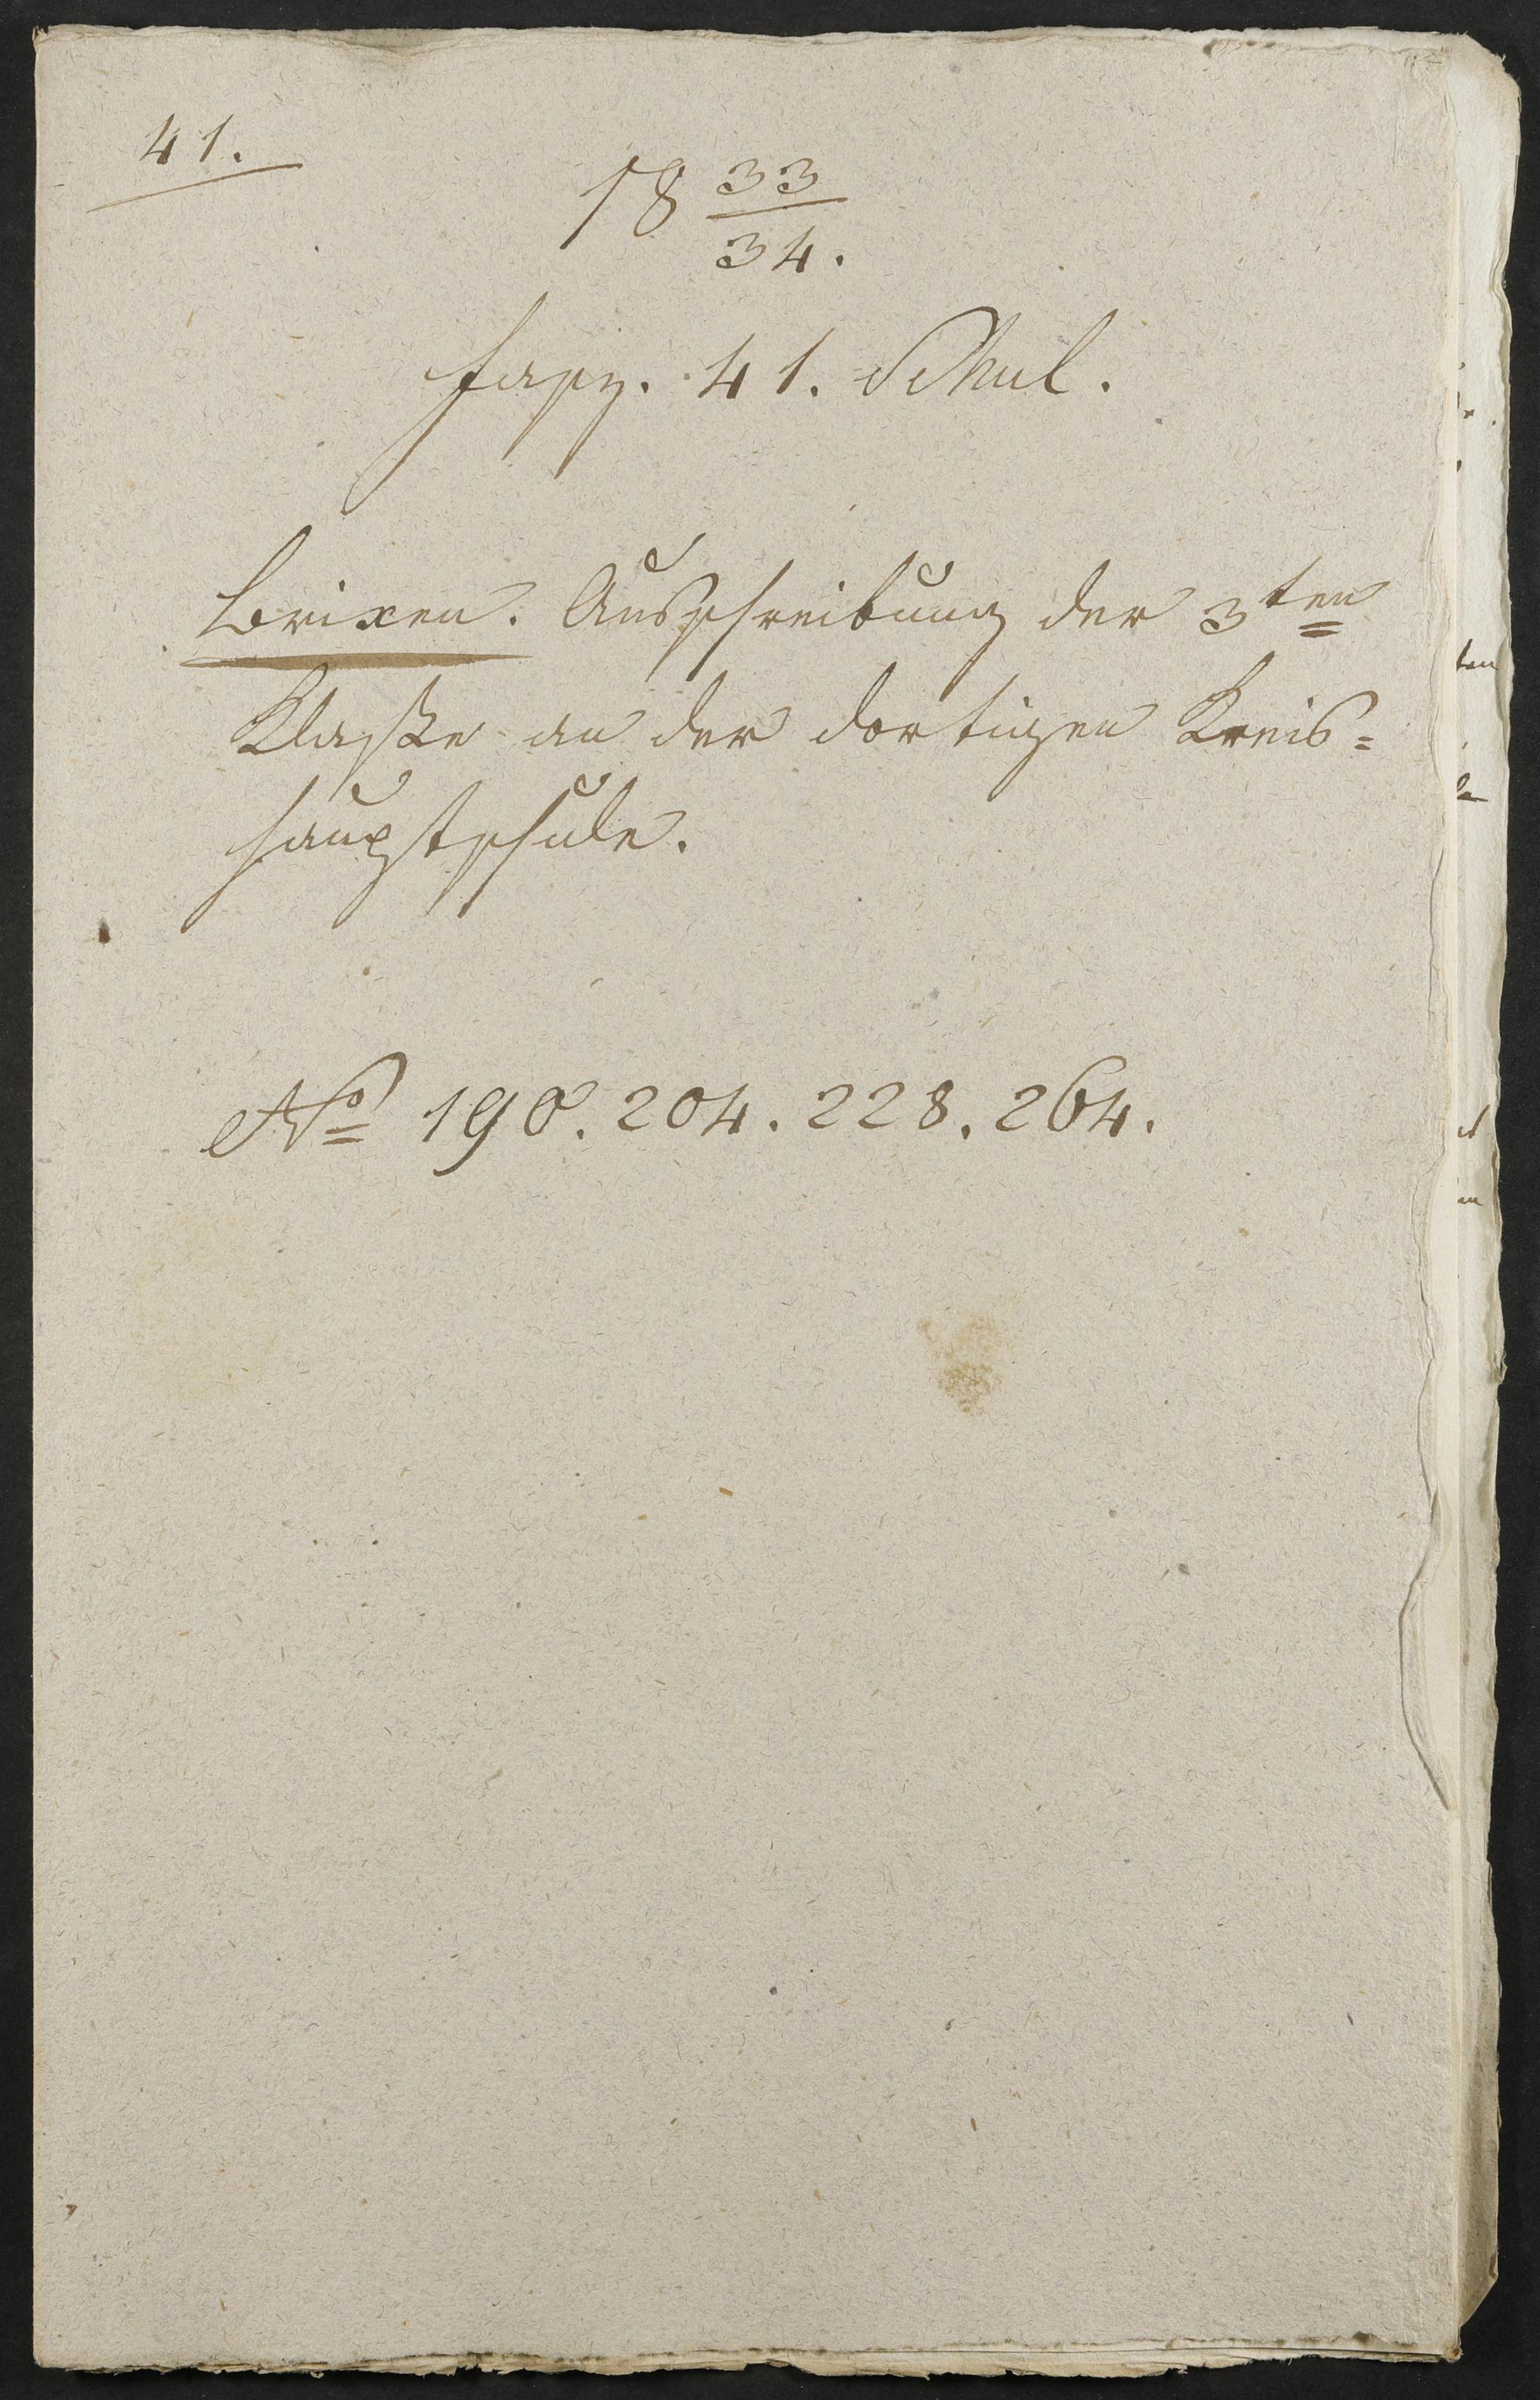 41.
18 33/34.
fasz. 41. Schul.
Brixen. Ausschreibung der 3ten
Klaße an der dortigen Kreis=
hauptschule.
No 190. 204. 228. 264.